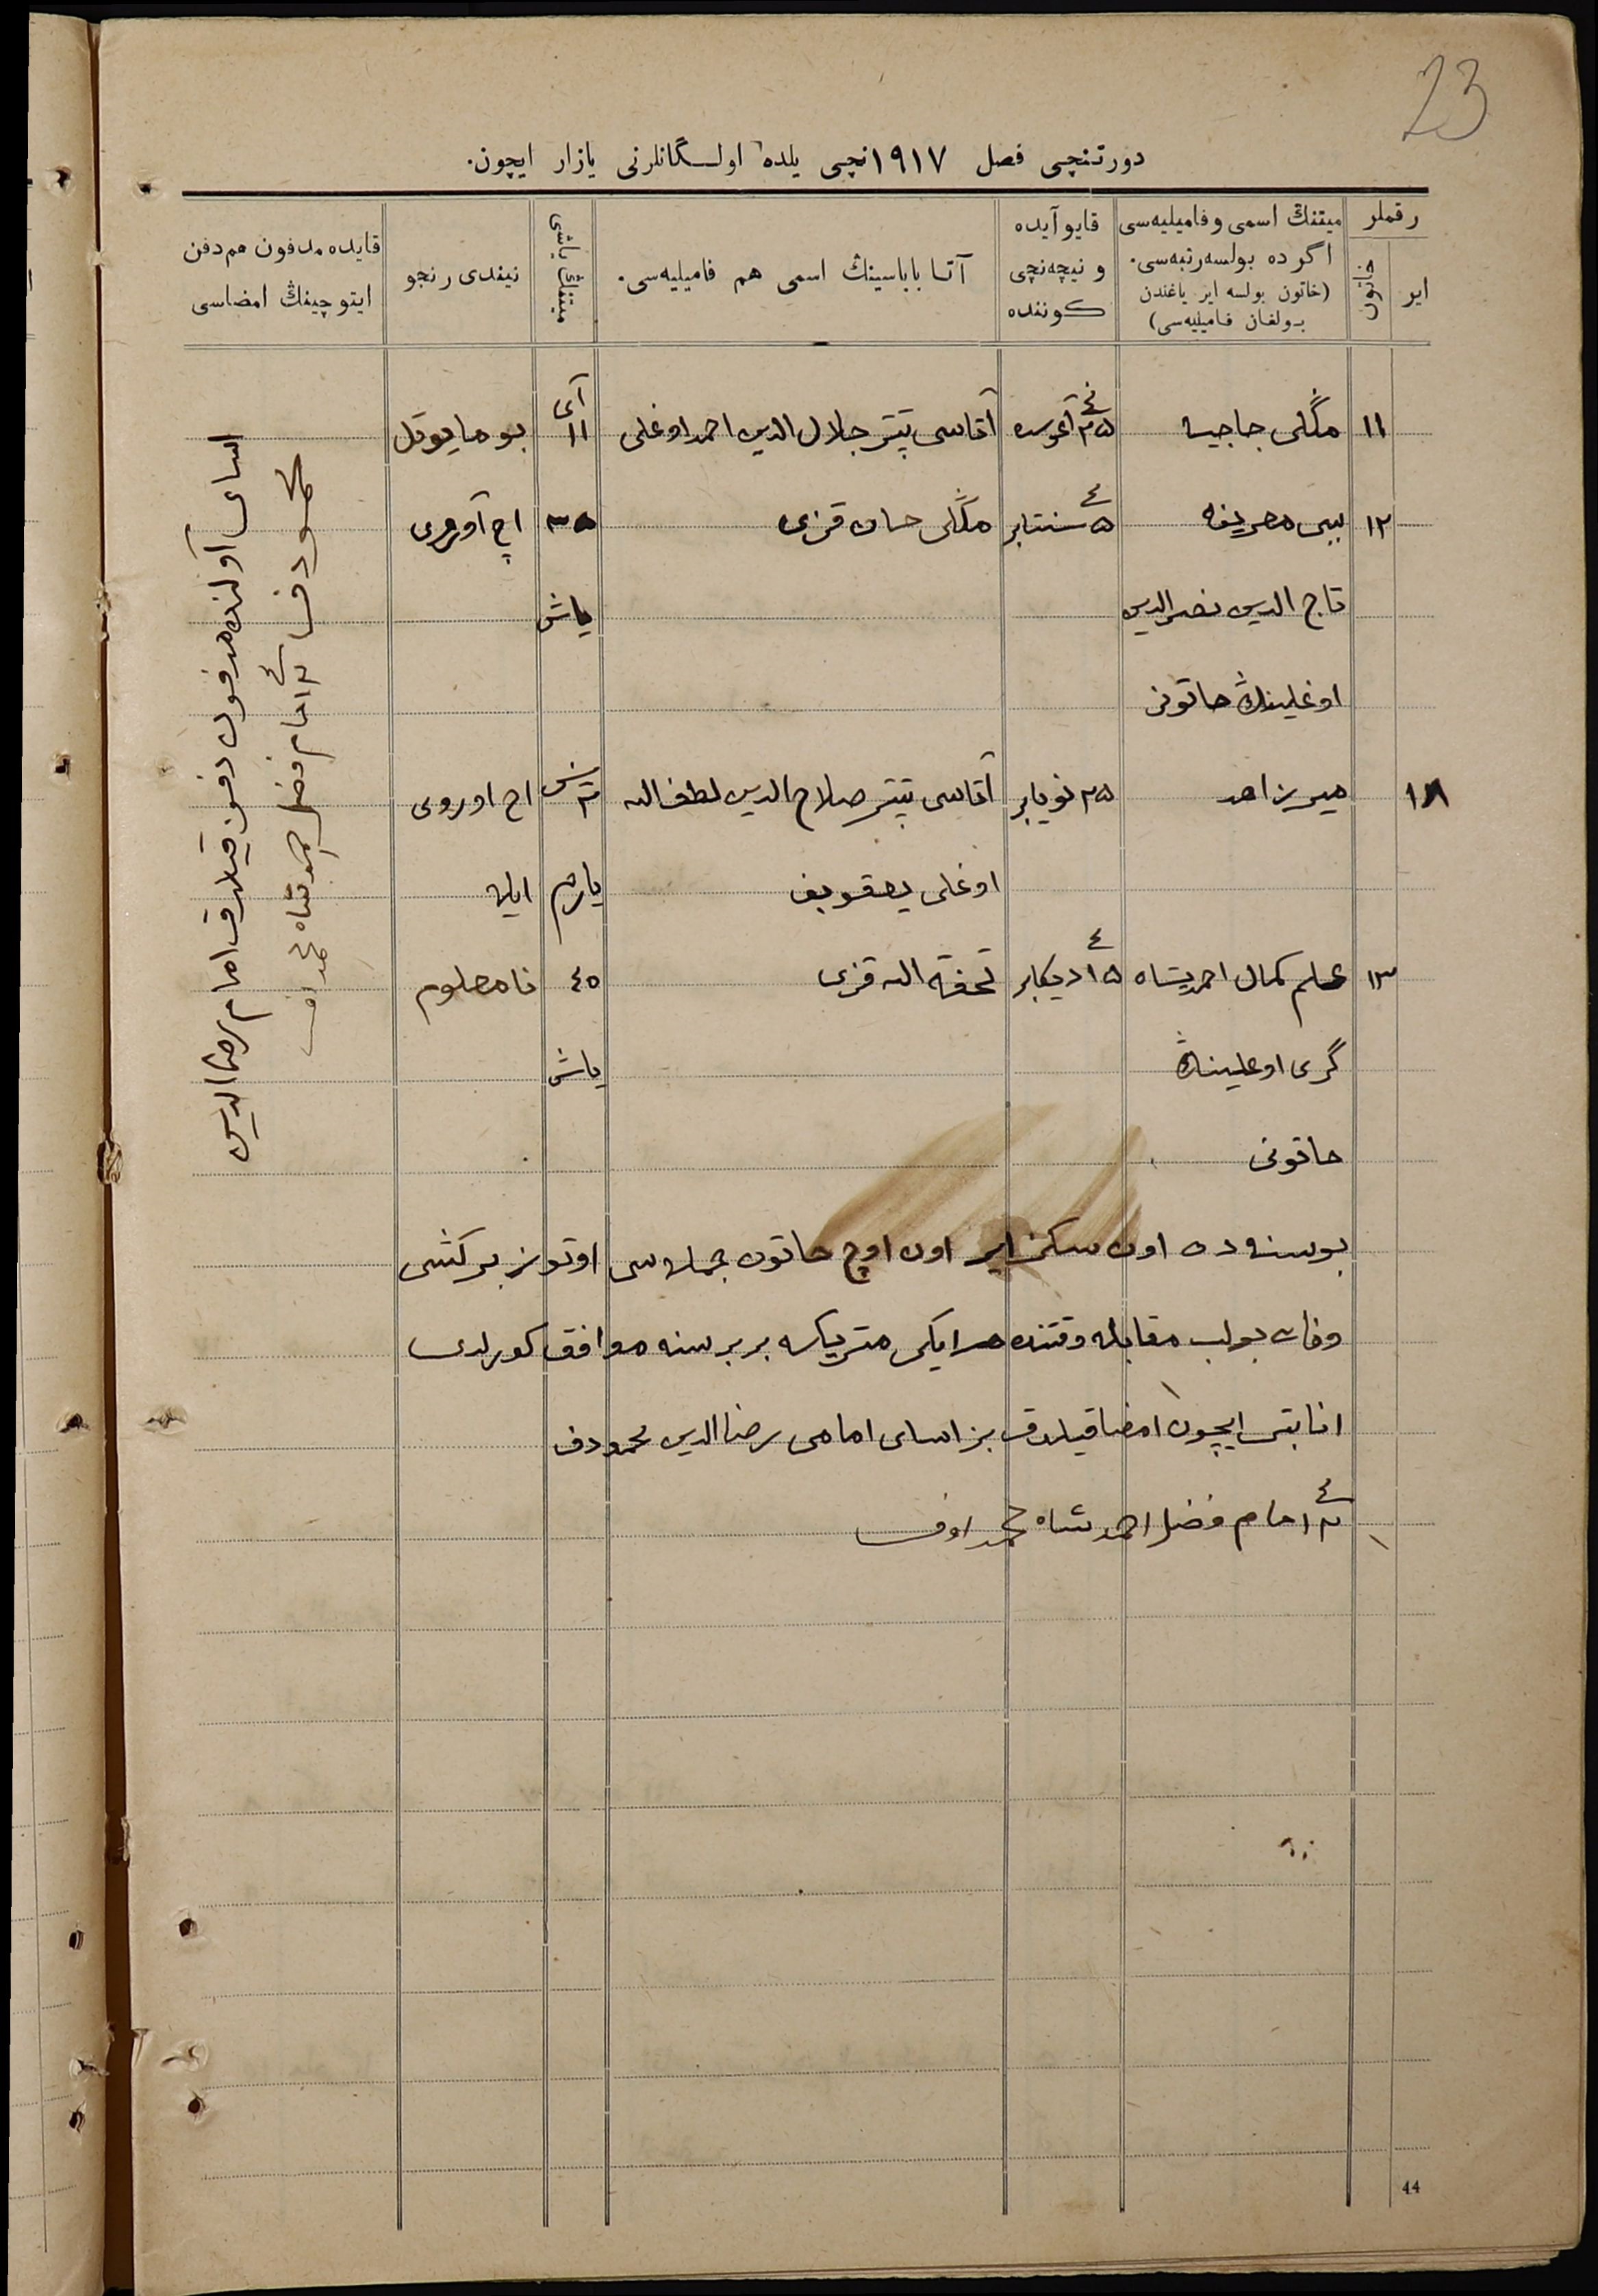 23
دورتنچی فصل ۱۹۱۷نچی یلده اولـگانلرنی یازار ایچون.
رقملر
ایر
خاتون
میتنڭ اسمی وفامیلیه‌سی
اگر ده بولسه رتبه‌سی.
(خاتون بولسه ایر یاغندن
بولغان فامیلیه‌سی)
قایو آیده
و نیچه‌نچی
کوننده
آتا باباسینڭ اسمی هم فامیلیه‌سی.
میتنڭ یاشی
نیندی رنجو
قایده مدفون هم دفن
ایتوچینڭ امضاسی
۱۱ منگلی ۲۵ آغوست آتاسی پیتر جلال الدین احمد اوغلی ۱۱ آی بوما یوتل
۱۲ بیبی معریفه ۵ سنتابر منگلی خان قزی ۳۵ اچ آوروی
تاج الدین نصرالدین یاش
اوغلینڭ خاتونی
۱۸ میرزاهد ۲۵ نویابر آتاسی پیتر صلاح الدین لطف الله ۲ اچ اوروی
اوغلی یعقوبف یارم ایله
۱۳ علم کمال احمدیشاه ۱۵ دیکابر تحفة الله قزی ٤٥ نامعلوم
گری اوغلینڭ یاش
خاتونی
بو سنه ده اون سکز ایر اون اوچ خاتون جمله سی اوتوز بر کشی
وفات بولب مقابله وقتنده هر ایکی متریکه بر برسنه موافق کورلدی
اثابتی ایچون امضا قیلدق بز اسای امامی رضاالدین محمودف
۲ امام فضل احمدشاه محمداوف
اسای آولنده مدفون دفن قیلدق امام رضاالدین
محمودف ۲ امام فضل احمدشاه محمداوف
44